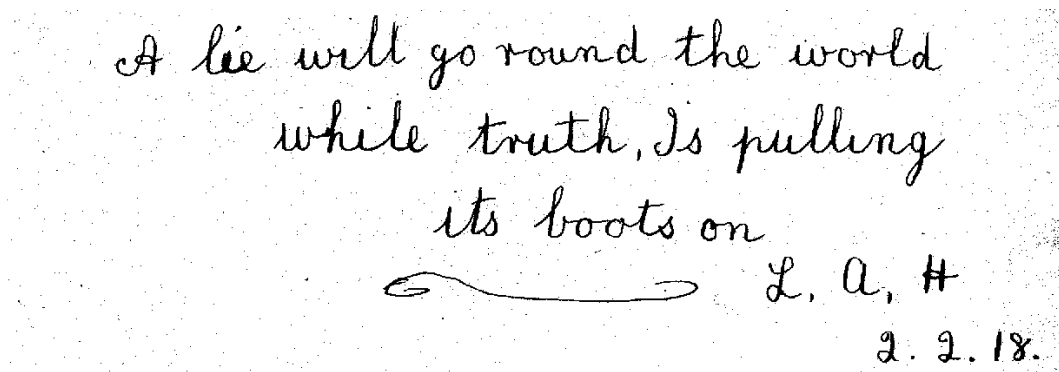 A lie will go round the world
while truth, Is pulling
its boots on
L, A, H
2. 2. 18.